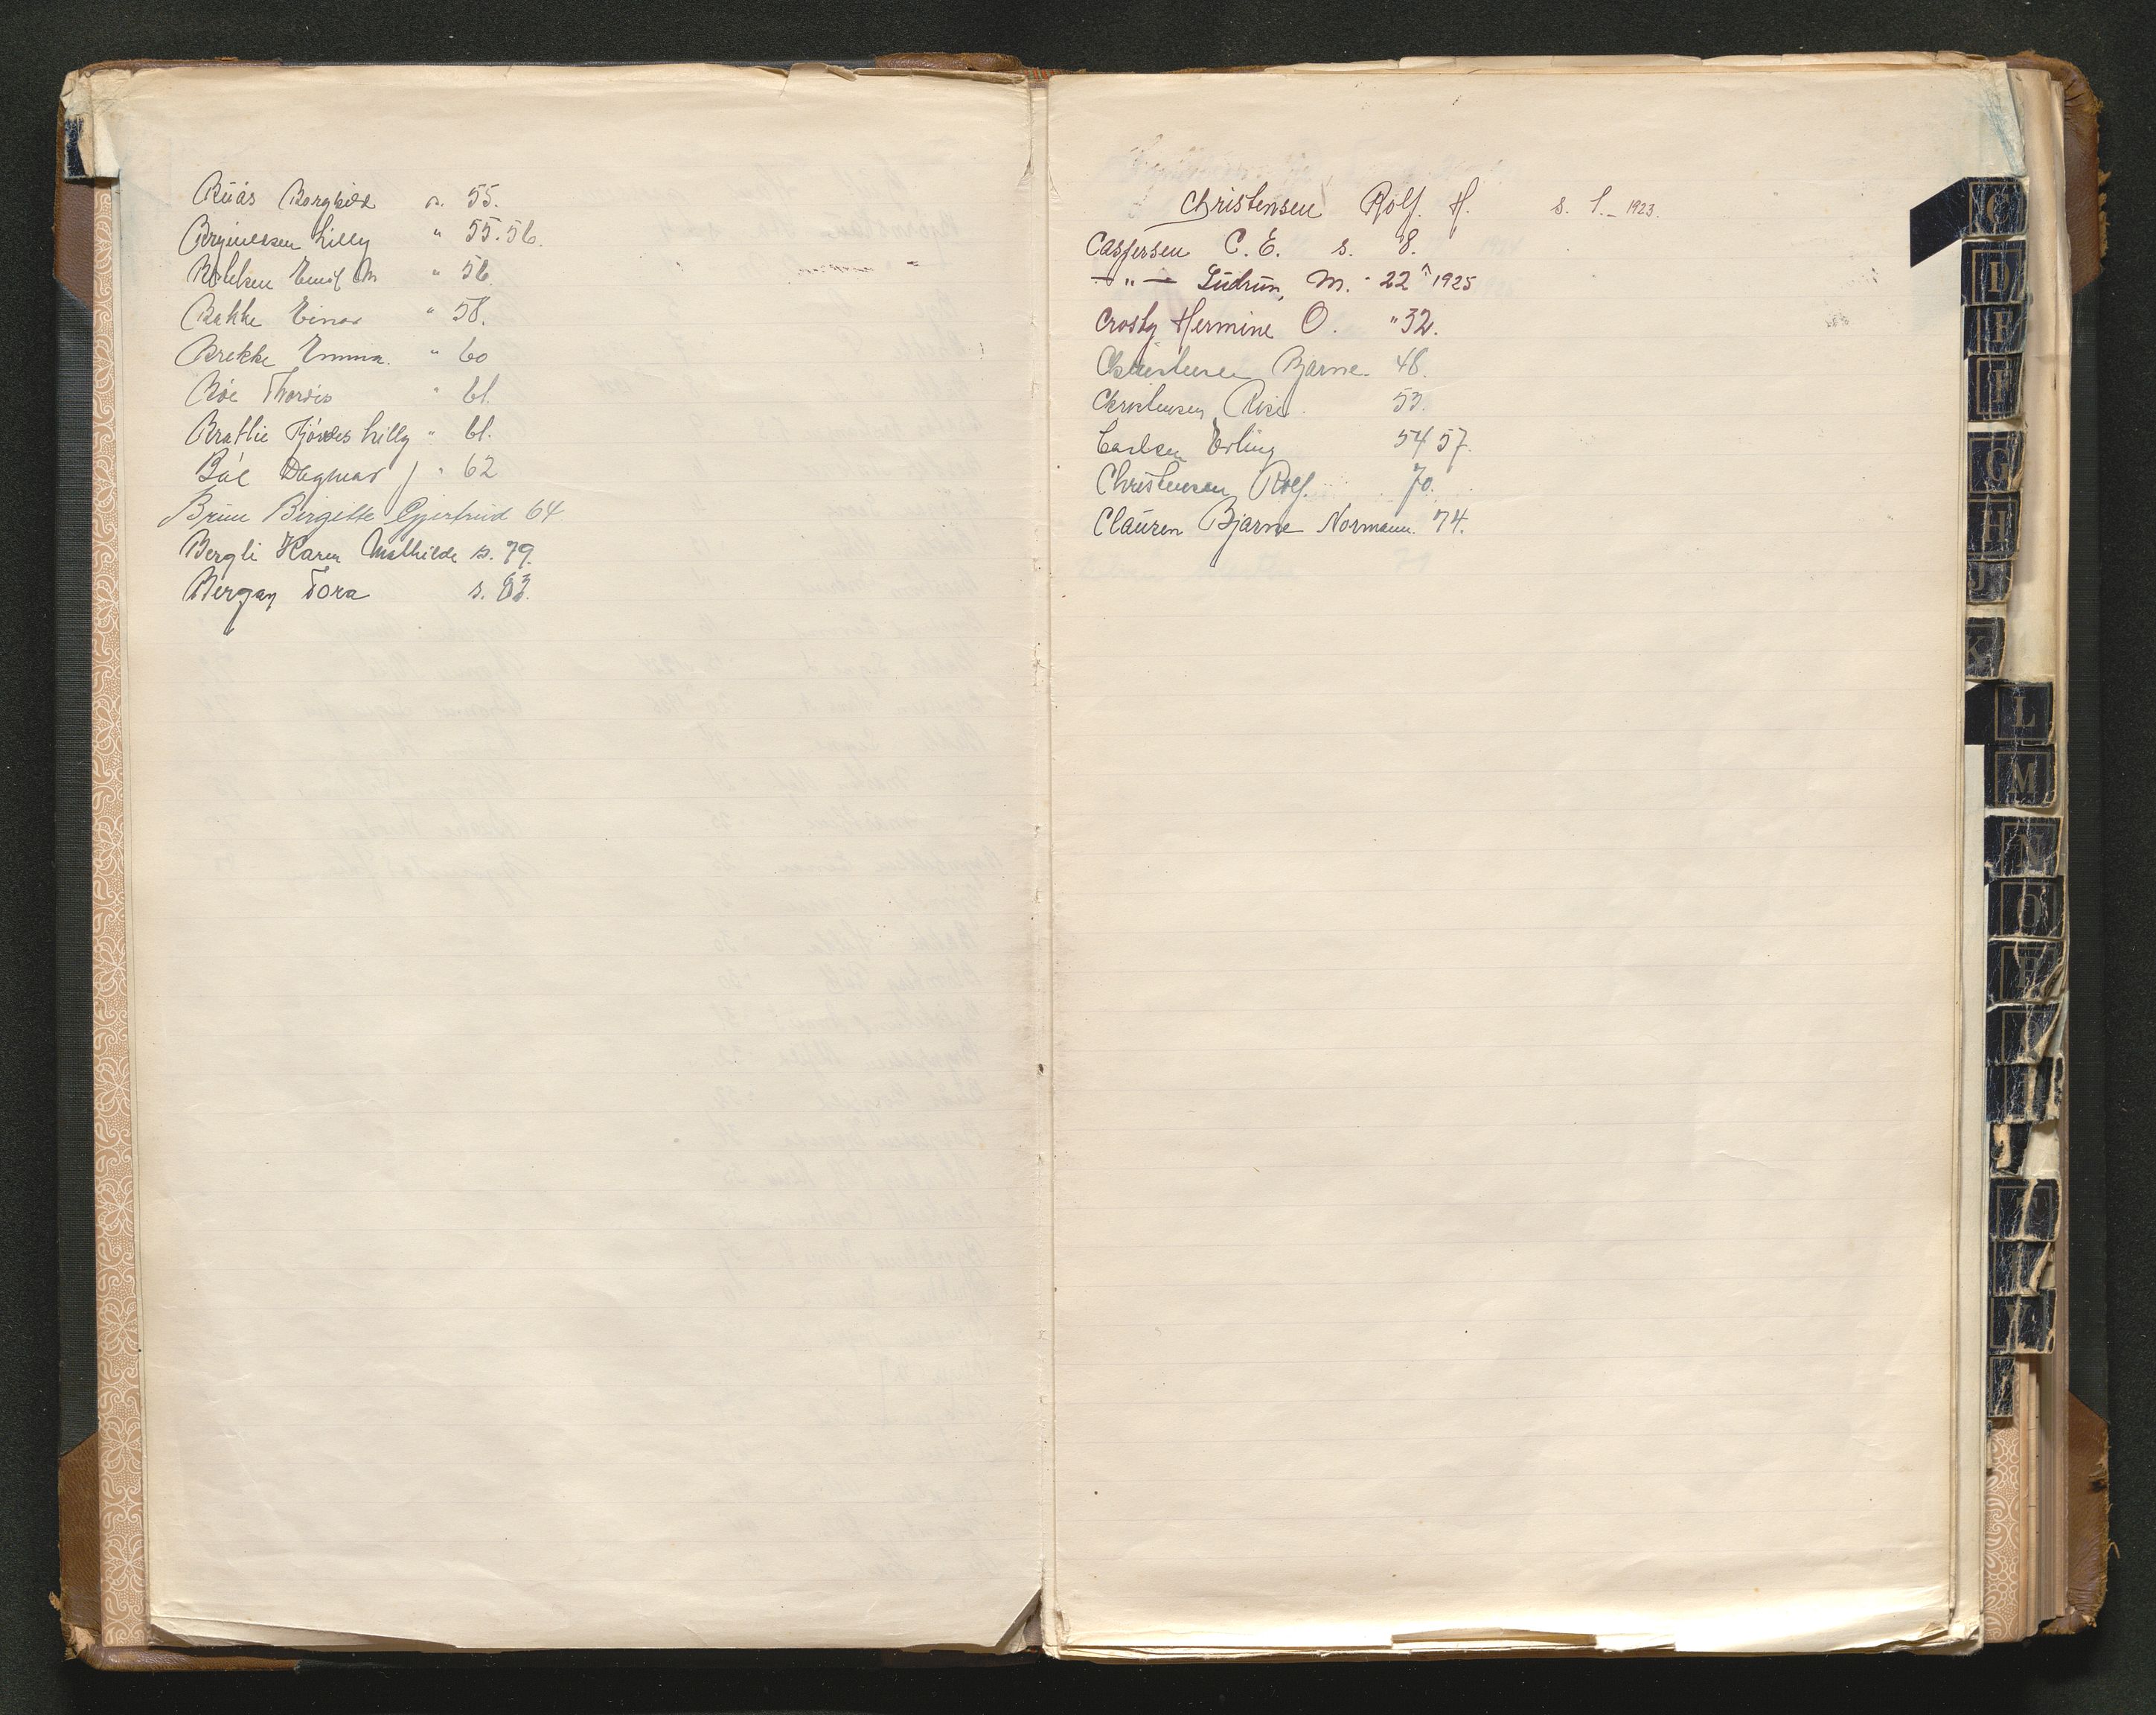 Buås Borghild s. 55.
Brynelsen Lilly " 55.56.
Emil M " 56.
Bakke Einar " 58.
Brekke Emma. " 60
Bøe Thordis " 61.
Bratlie Tjördes Lilly " 61.
Båe Dagmar " 62
Bruu Birgitte Gjertrud 64
Bergli Karen Mathilde s. 79.
Bergan Tora s. 83.
Christensen Rolf. H. s. 1. – 1923.
Caspersen C. E. s. 8.
— " — Gudrun, M. " 22 1925
Crosby Hermine O. " 32.
Christensen Bjarne. 48.
Christensen 53.
Carlsen Erling 54 57.
Christensen Rolf. 70.
Clausen Bjarne Normann. 74.
C
D
E
F
G
H
J
K
L
M
N
O
P